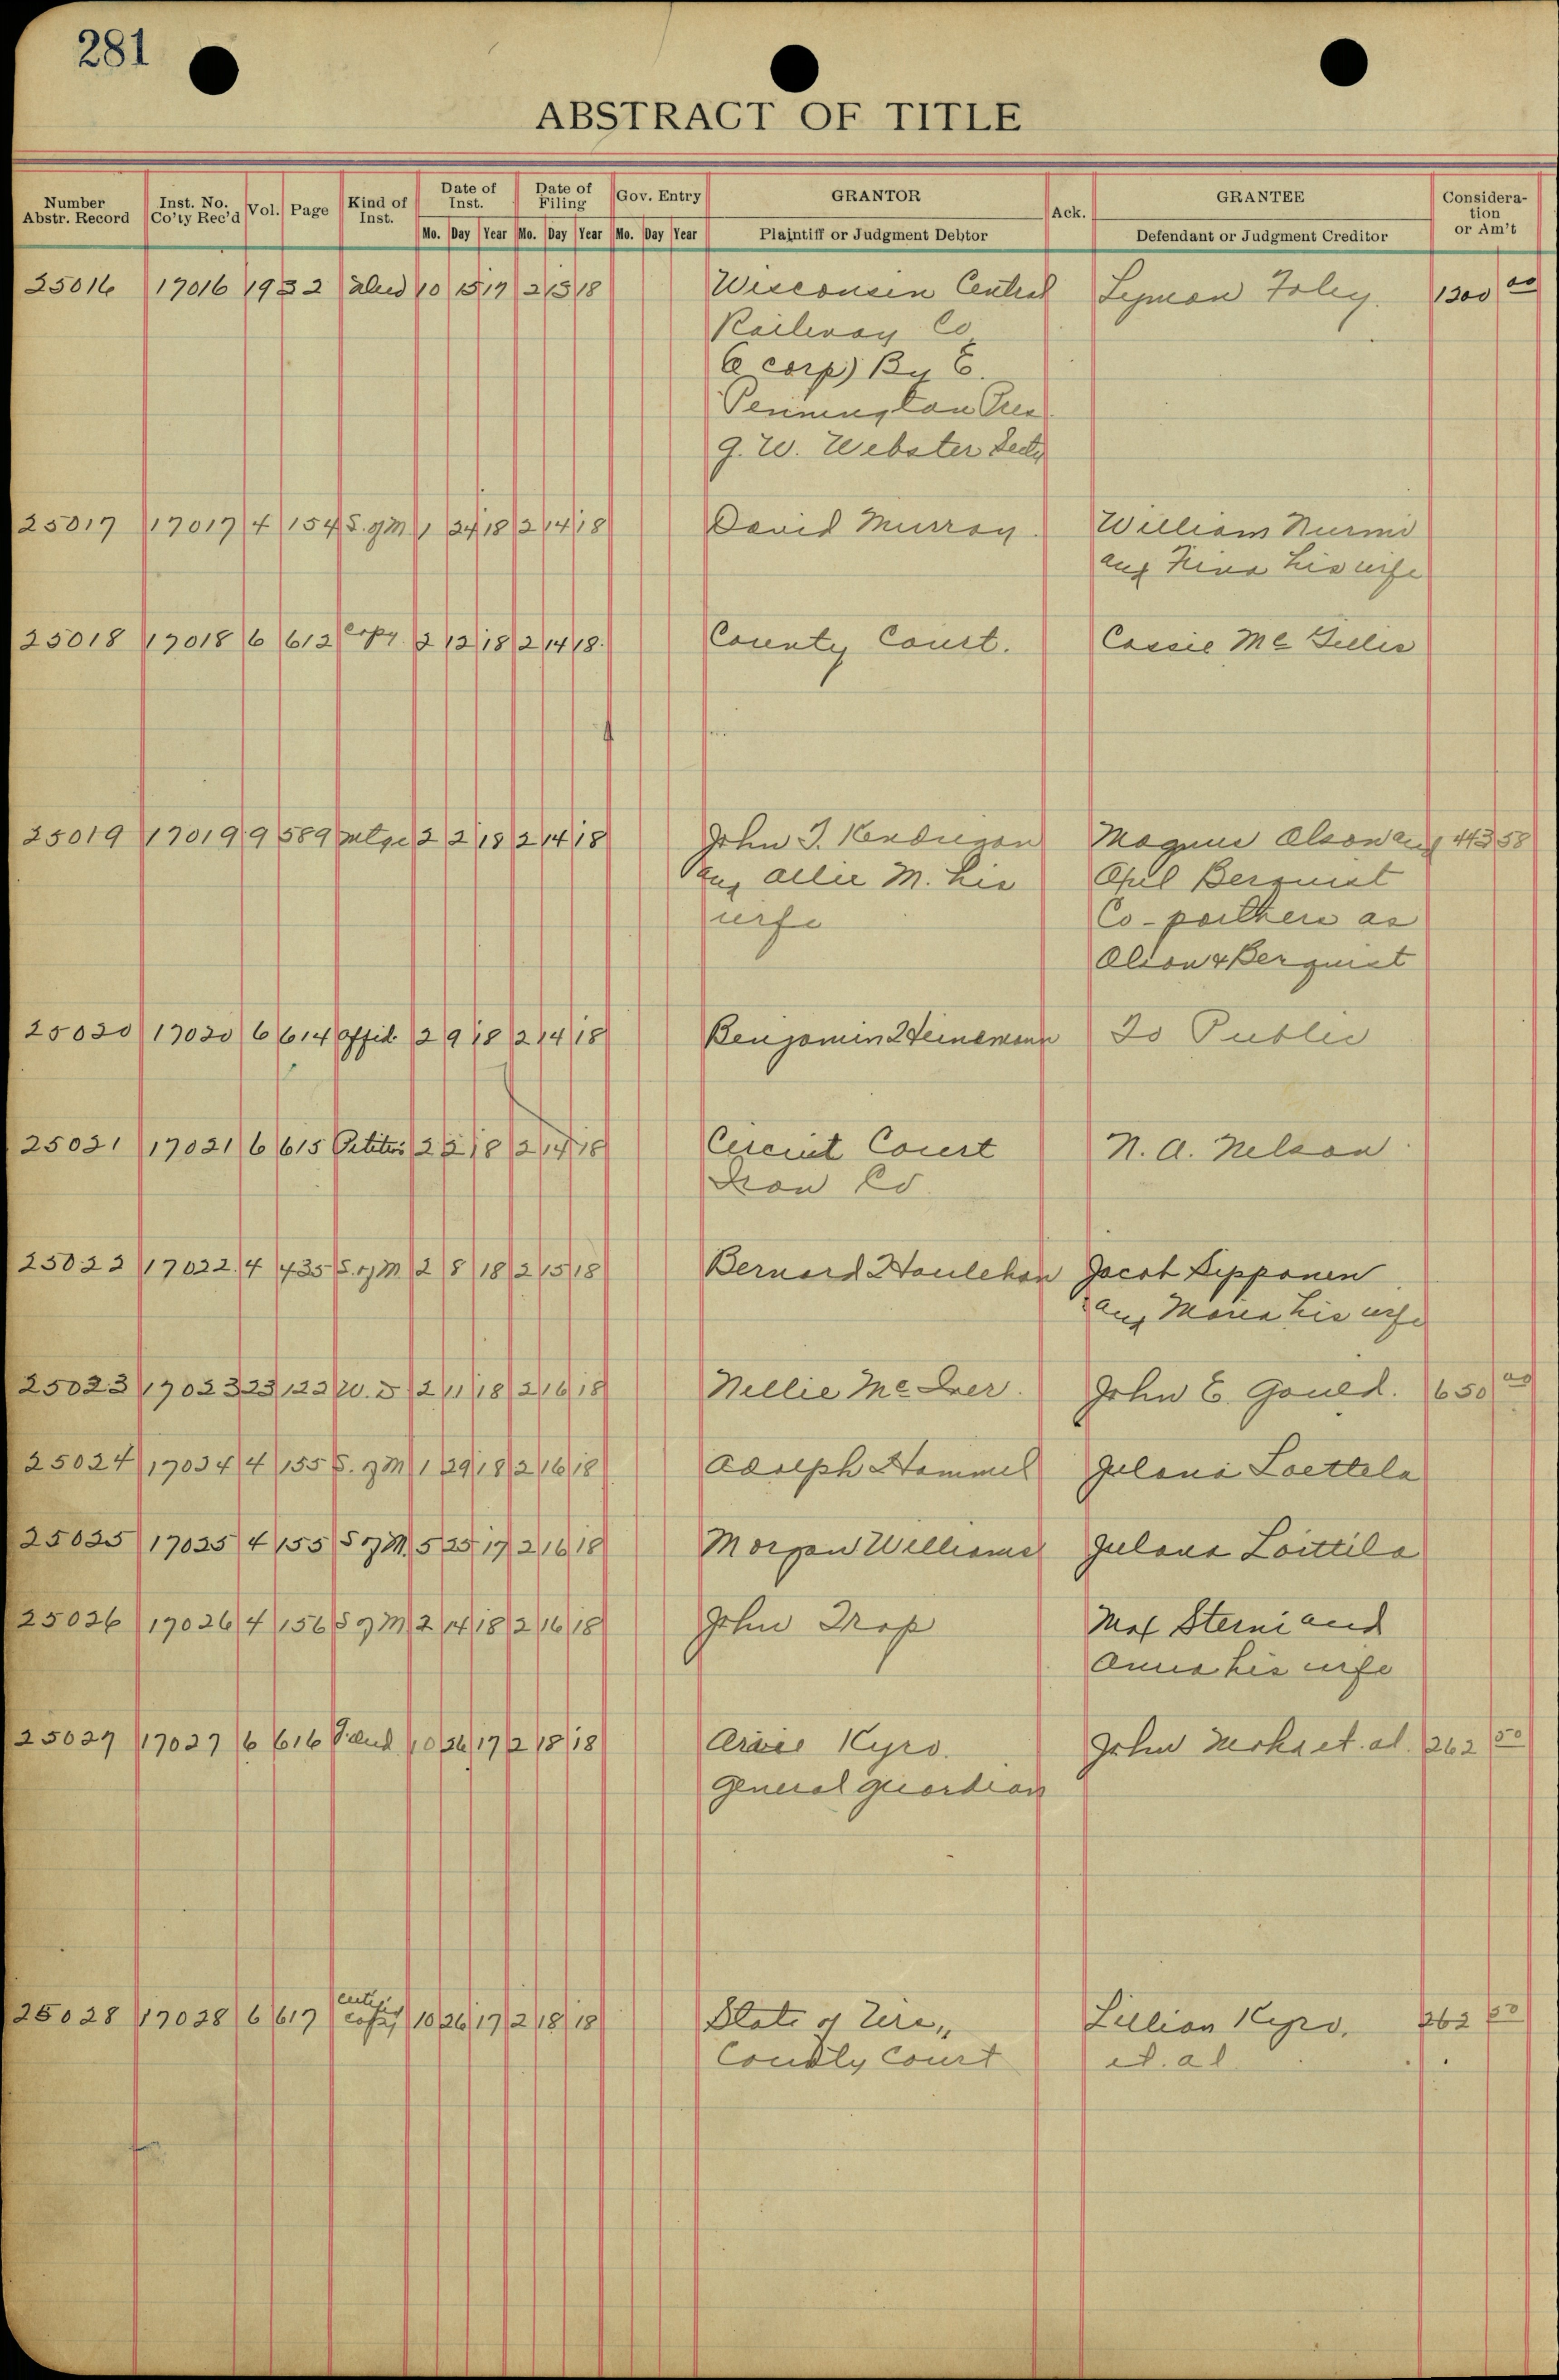 281
ABSTRACT OF TITLE
Number Abstr. Record Inst. No. Co'ty Rec'd Vol. Page Kind of Inst. Date of Inst. Date of Filing Gov. Entry GRANTOR Ack. GRANTEE Considera-tion or Am't
Mo. Day Year Mo. Day Year Mo. Day Year Plaintiff or Judgment Debtor Defendant or Judgment Creditor
25016 17016 19 32 Deed 10 15 17 2 13 18 Wisconsin Central Lyman Foley. 1300 00
Railway Co
(a corp) By E.
Pennington Pres
G. W. Webster Secty
25017 17017 4 154 S. of M 1 24 18 2 14 18 David Murray. William Nurmi
and Hina his wife
25018 17018 6 612 Copy. 2 12 18 2 14 18. County Court. Cassie Mc Gillis
25019 17019 9 589 Mtge 2 2 18 2 14 18 John T. Kendrigan Magnus Olson and 443 58
and Allie M. his Axel Berquist
wife Co-partners as
Olson & Berquist
25020 17020 6 614 Affid. 2 9 18 2 14 18 Benjamin Heinemann To Public
25021 17021 6 615 Petition 2 2 18 2 14 18 Circuit Court N. A. Nelson
Iron Co
25022 17022 4 435 S. of M 2 8 18 2 15 18 Bernard Houlehan Jacob Sipponen
and Maria his wife
25023 17023 23 122 W. D 2 11 18 2 16 18 Nellie Mc Iver. John E. Gould. 650 00
25024 17024 4 155 S. of M 1 29 18 2 16 18 Adolph Hammel Julana Loettela
25025 17025 4 155 S of M. 5 25 17 2 16 18 Morgan Williams Julana Loittila
25026 17026 4 156 S of M 2 14 18 2 16 18 John Trop Max Sterni and
Anna his wife
25027 17027 6 616 10 26 17 2 18 18 Kyro. John et. al. 262 50
General guardian
25028 17028 6 617 Certif copy 10 26 17 2 18 18 State of Wis,, Lillian Kyro. 262 50
County Court et. al.